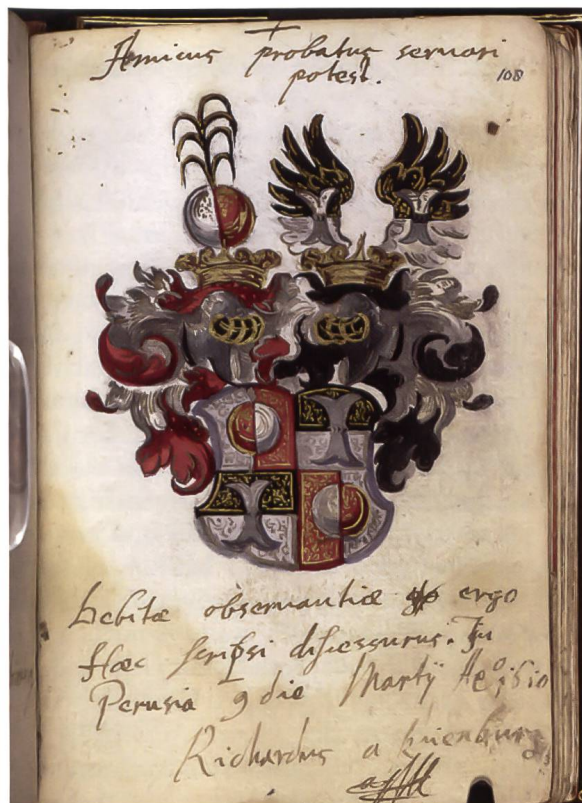 Amicus probatus servari
potest.
108
Debitæ observantiæ ergo
Hæc scripsi discessurus. In
Perusia 9 die Martÿ Aº 1610
Richardus a Kuenburg